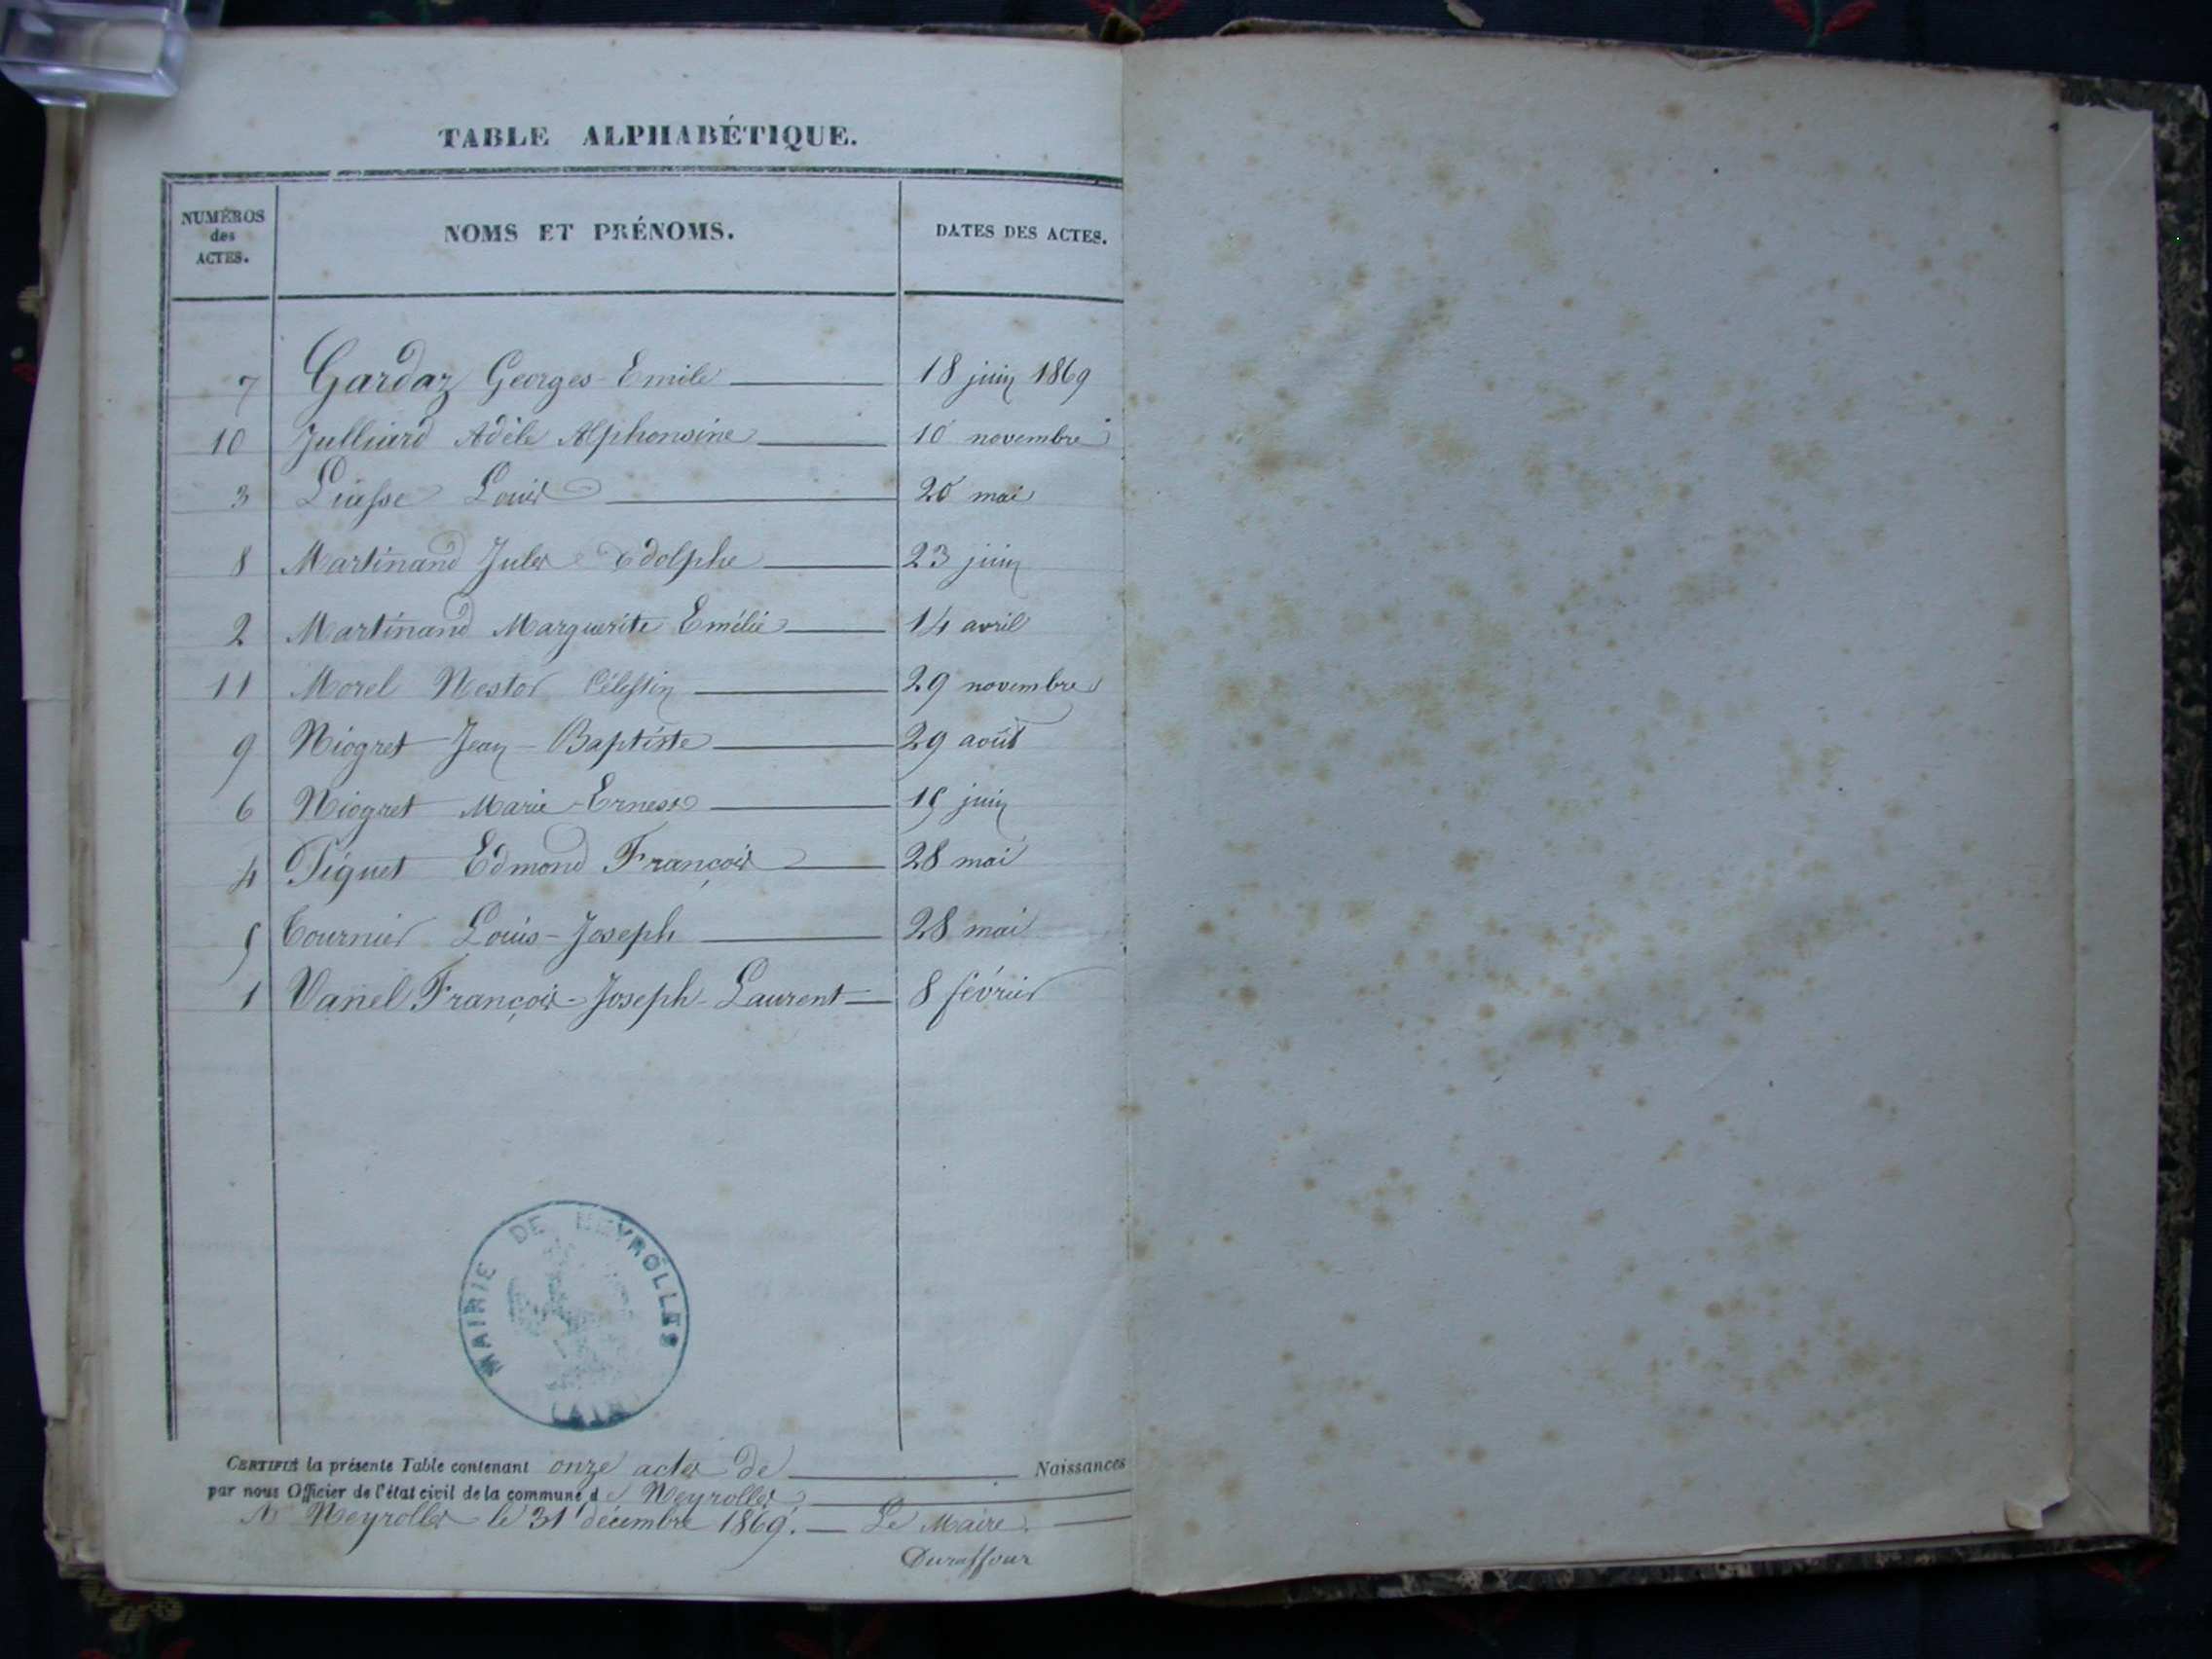 TABLE ALPHABÉTIQUE.
NUMÉROS des ACTES. NOMS ET PRÉNOMS. DATES DES ACTES.
7 Gardaz Georges-Emile 18 juin 1869
10 Julliard Adèle Alphonsine 10 novembre
3 Louis 20 mai
8 Martinand Jules Adolphe 23 juin
2 Martinand Marguerite Emélie 14 avril
11 Morel Nestor Célestin 29 novembre
9 Niogret Jean-Baptiste 29 août
6 Niogret Marie-Ernest 15 juin
4 Piquet Edmond François 28 mai
5 Tournier Louis-Joseph 28 mai
1 Vanel François-Joseph-Laurent 8 février
MAIRIE DE NEYROLLES
(AIN)
CERTIFIÉ la présente Table contenant onze actes de Naissances
par nous Officier de l'état civil de la commune de Neyrolles
A Neyrolles le 31 décembre 1869. Le Maire.
Duraffour